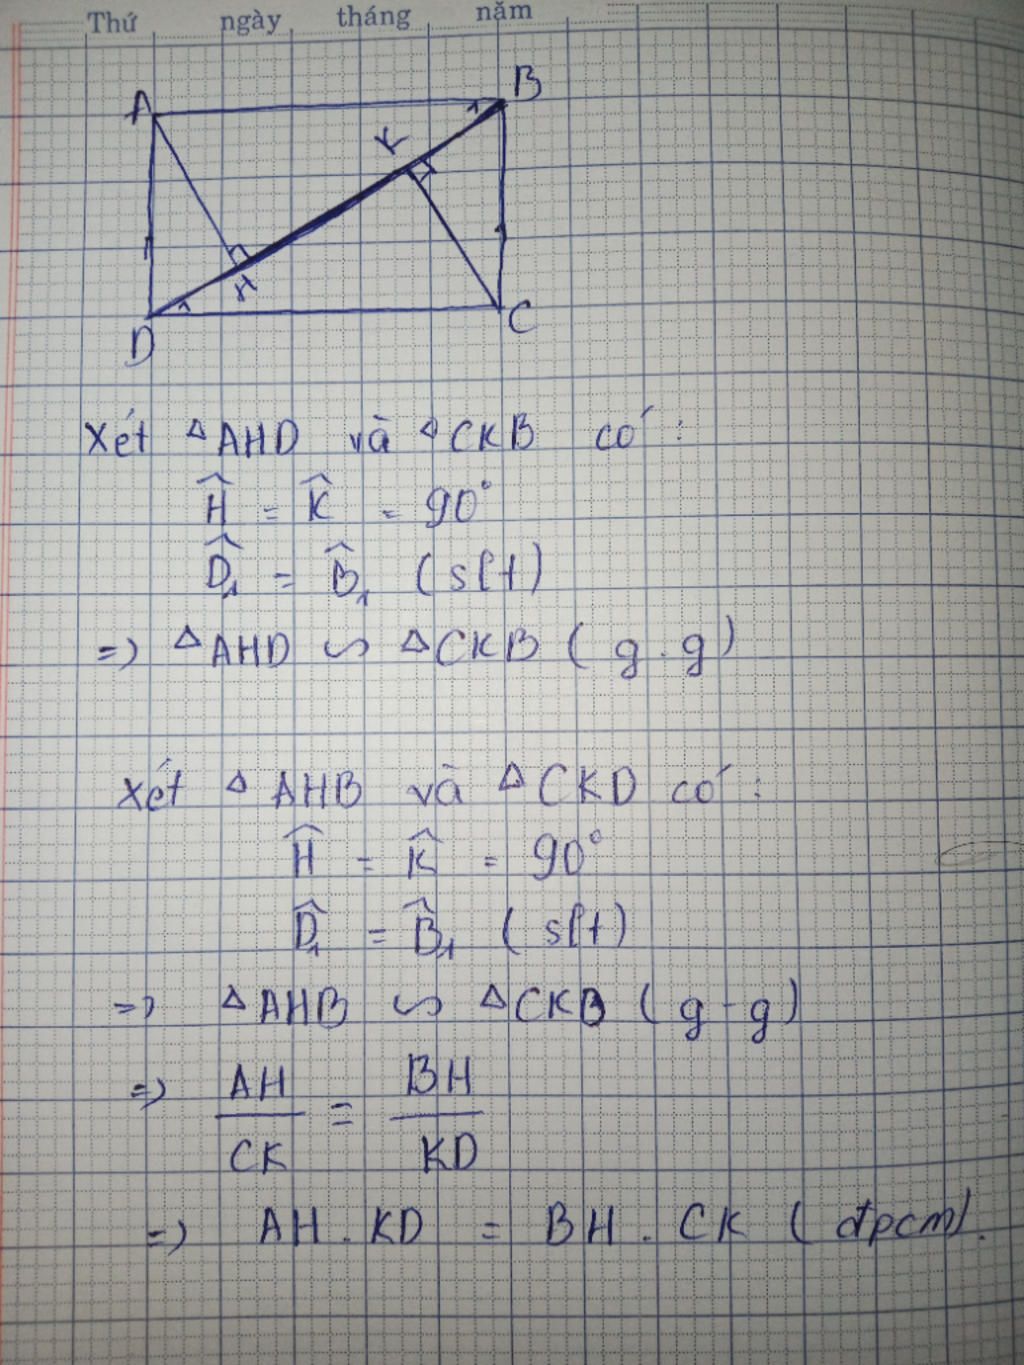 Thứ ngày tháng năm
A B
K
H
D C
Xét △AHD và △CKB có :
Ĥ = K̂ = 90°
D̂₁ = B̂₁ (slt)
=) △AHD ∽ △CKB ( g . g )
Xét △ AHB và △CKD có :
Ĥ = K̂ = 90°
D̂₁ = B̂₁ ( slt)
=) △AHB ∽ △CKB ( g - g )
=) AH/CK = BH/KD
=) AH . KD = BH . CK ( đpcm) .